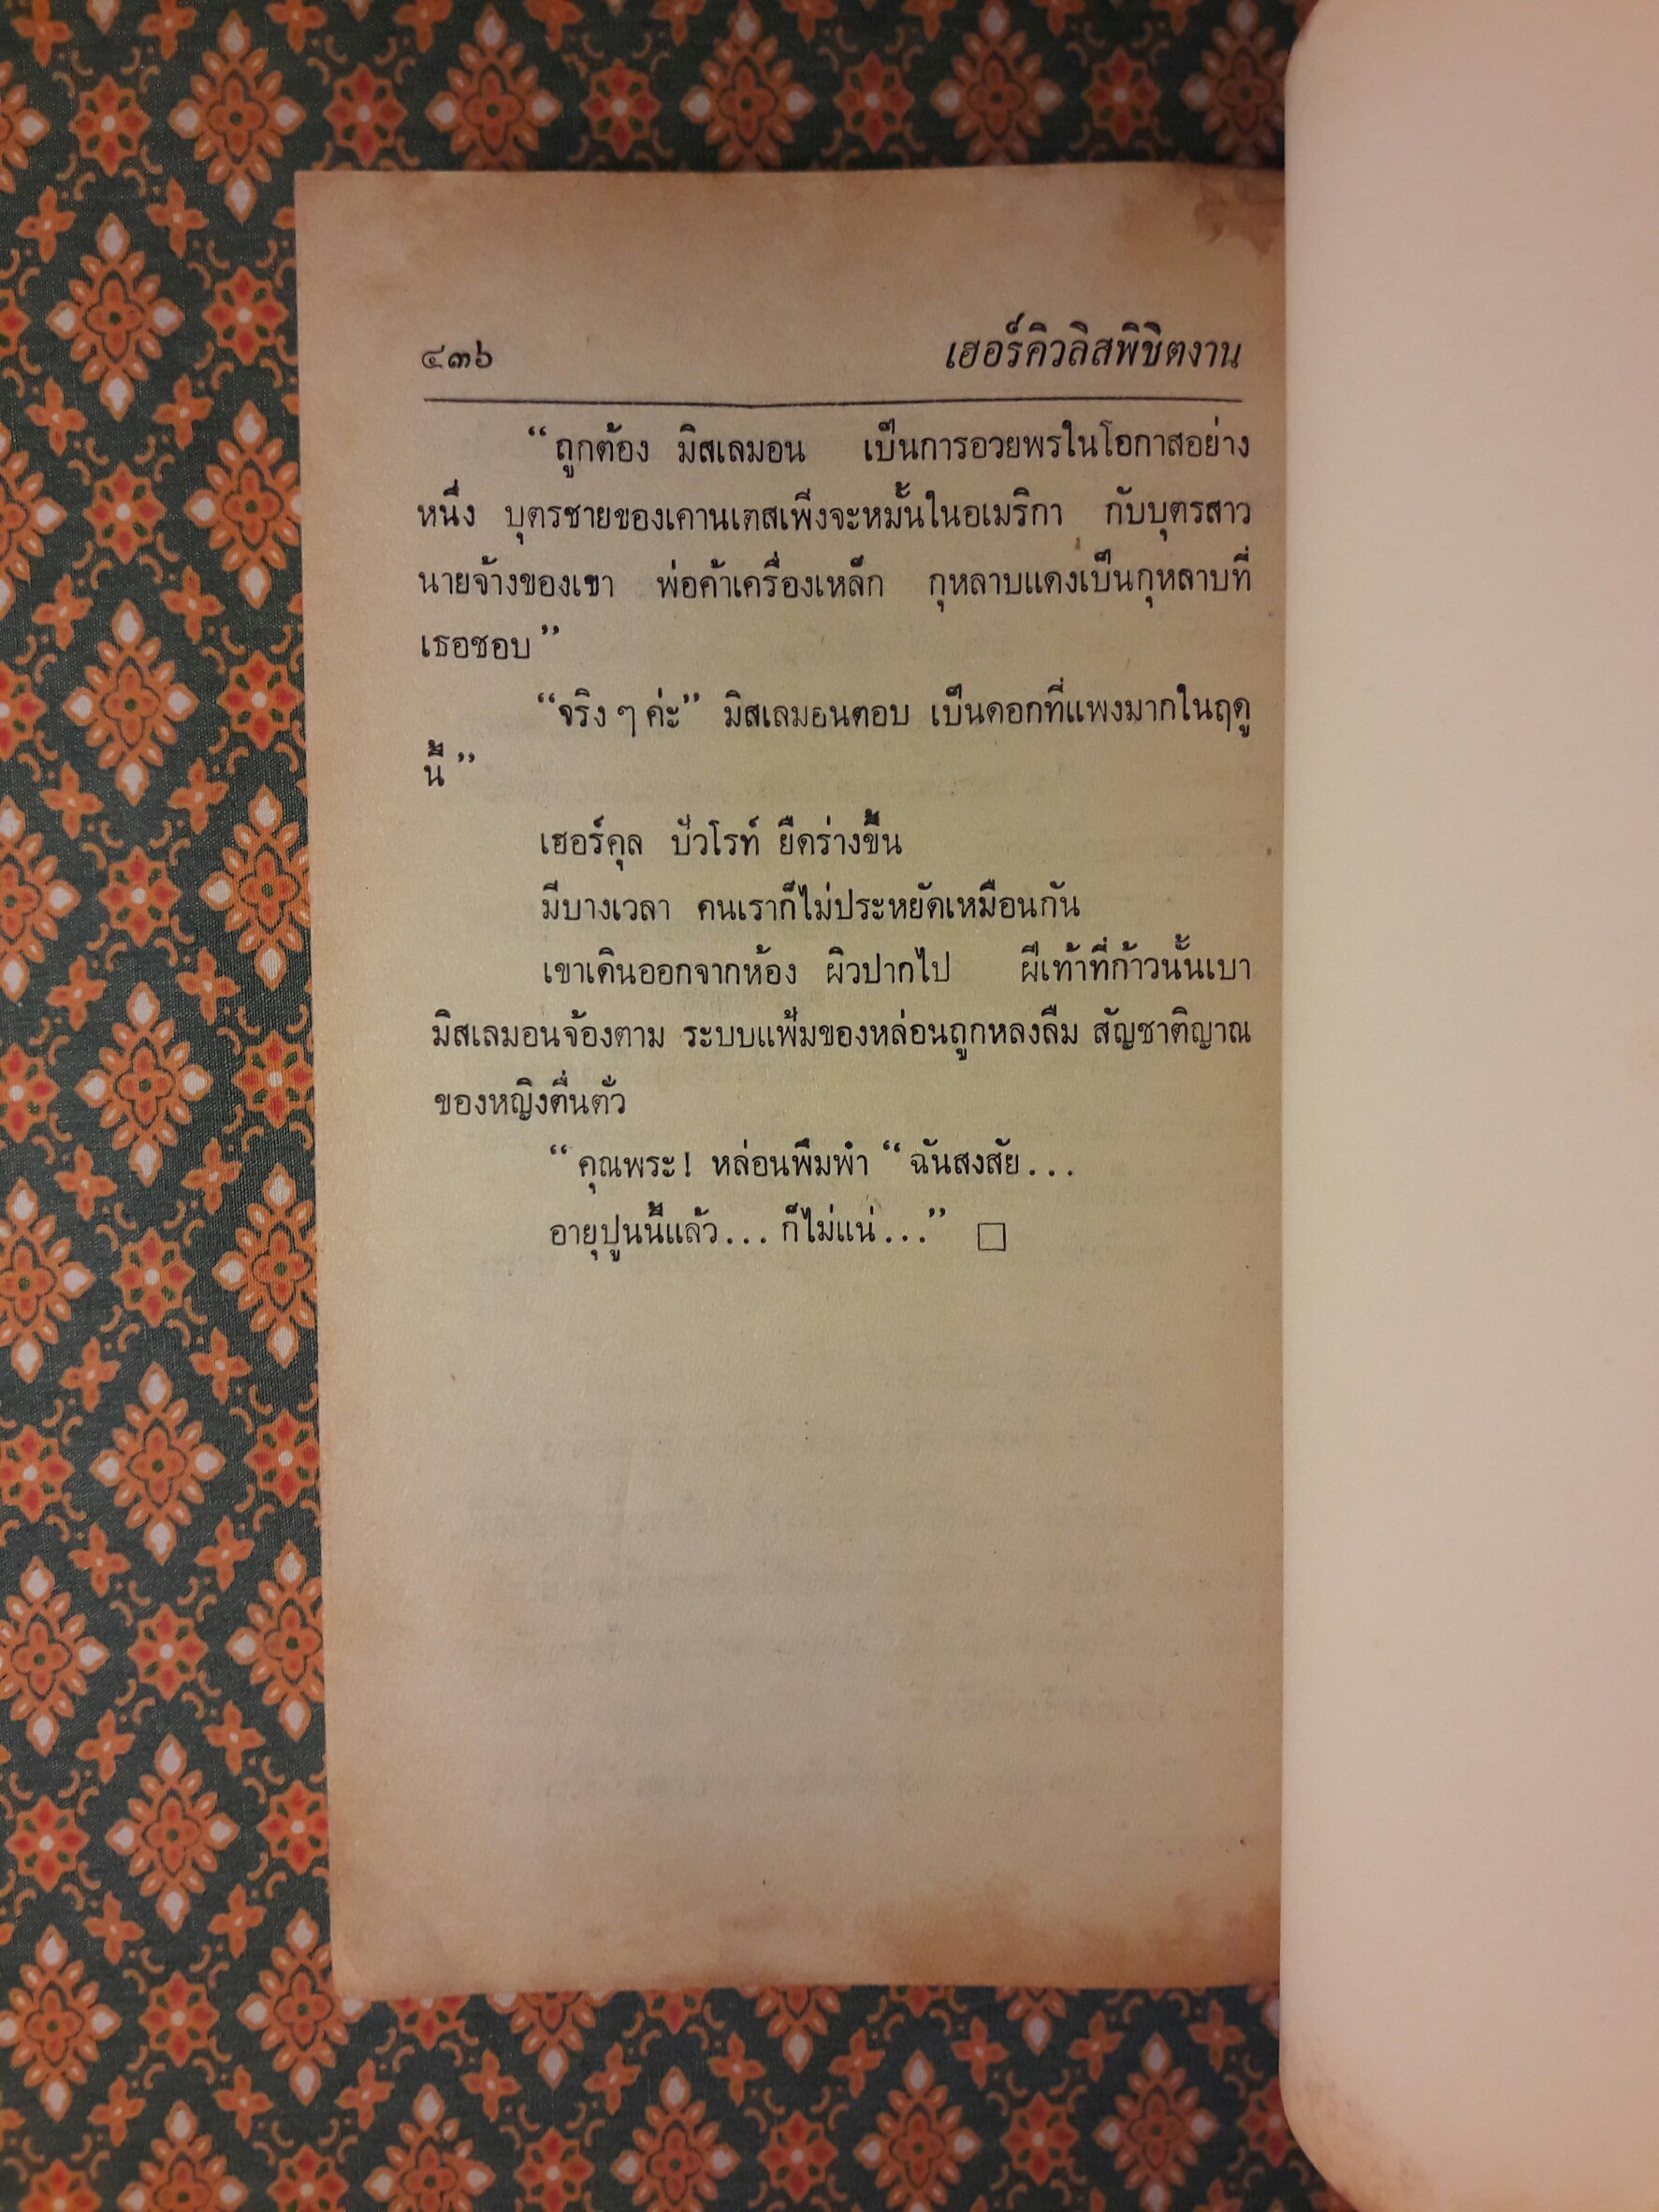 ๔๓๖ เฮอร์คิวลิสพิชิตงาน
“ถูกต้อง มิสเลมอน เป็นการอวยพรในโอกาสอย่าง
หนึ่ง บุตรชายของเคานเตสเพิ่งจะหมั้นในอเมริกา กับบุตรสาว
นายจ้างของเขา พ่อค้าเครื่องเหล็ก กุหลาบแดงเป็นกุหลาบที่
เธอชอบ”
“จริง ๆ ค่ะ” มิสเลมอนตอบ เป็นดอกที่แพงมากในฤดู
นี้”
เฮอร์คุล ปัวโรท์ ยืดร่างขึ้น
มีบางเวลา คนเราก็ไม่ประหยัดเหมือนกัน
เขาเดินออกจากห้อง ผิวปากไป ฝีเท้าที่ก้าวนั้นเบา
มิสเลมอนจ้องตาม ระบบแฟ้มของหล่อนถูกหลงลืม สัญชาติญาณ
ของหญิงตื่นตัว
“คุณพระ! หล่อนพึมพำ “ฉันสงสัย...
อายุปูนนี้แล้ว... ก็ไม่แน่...” □